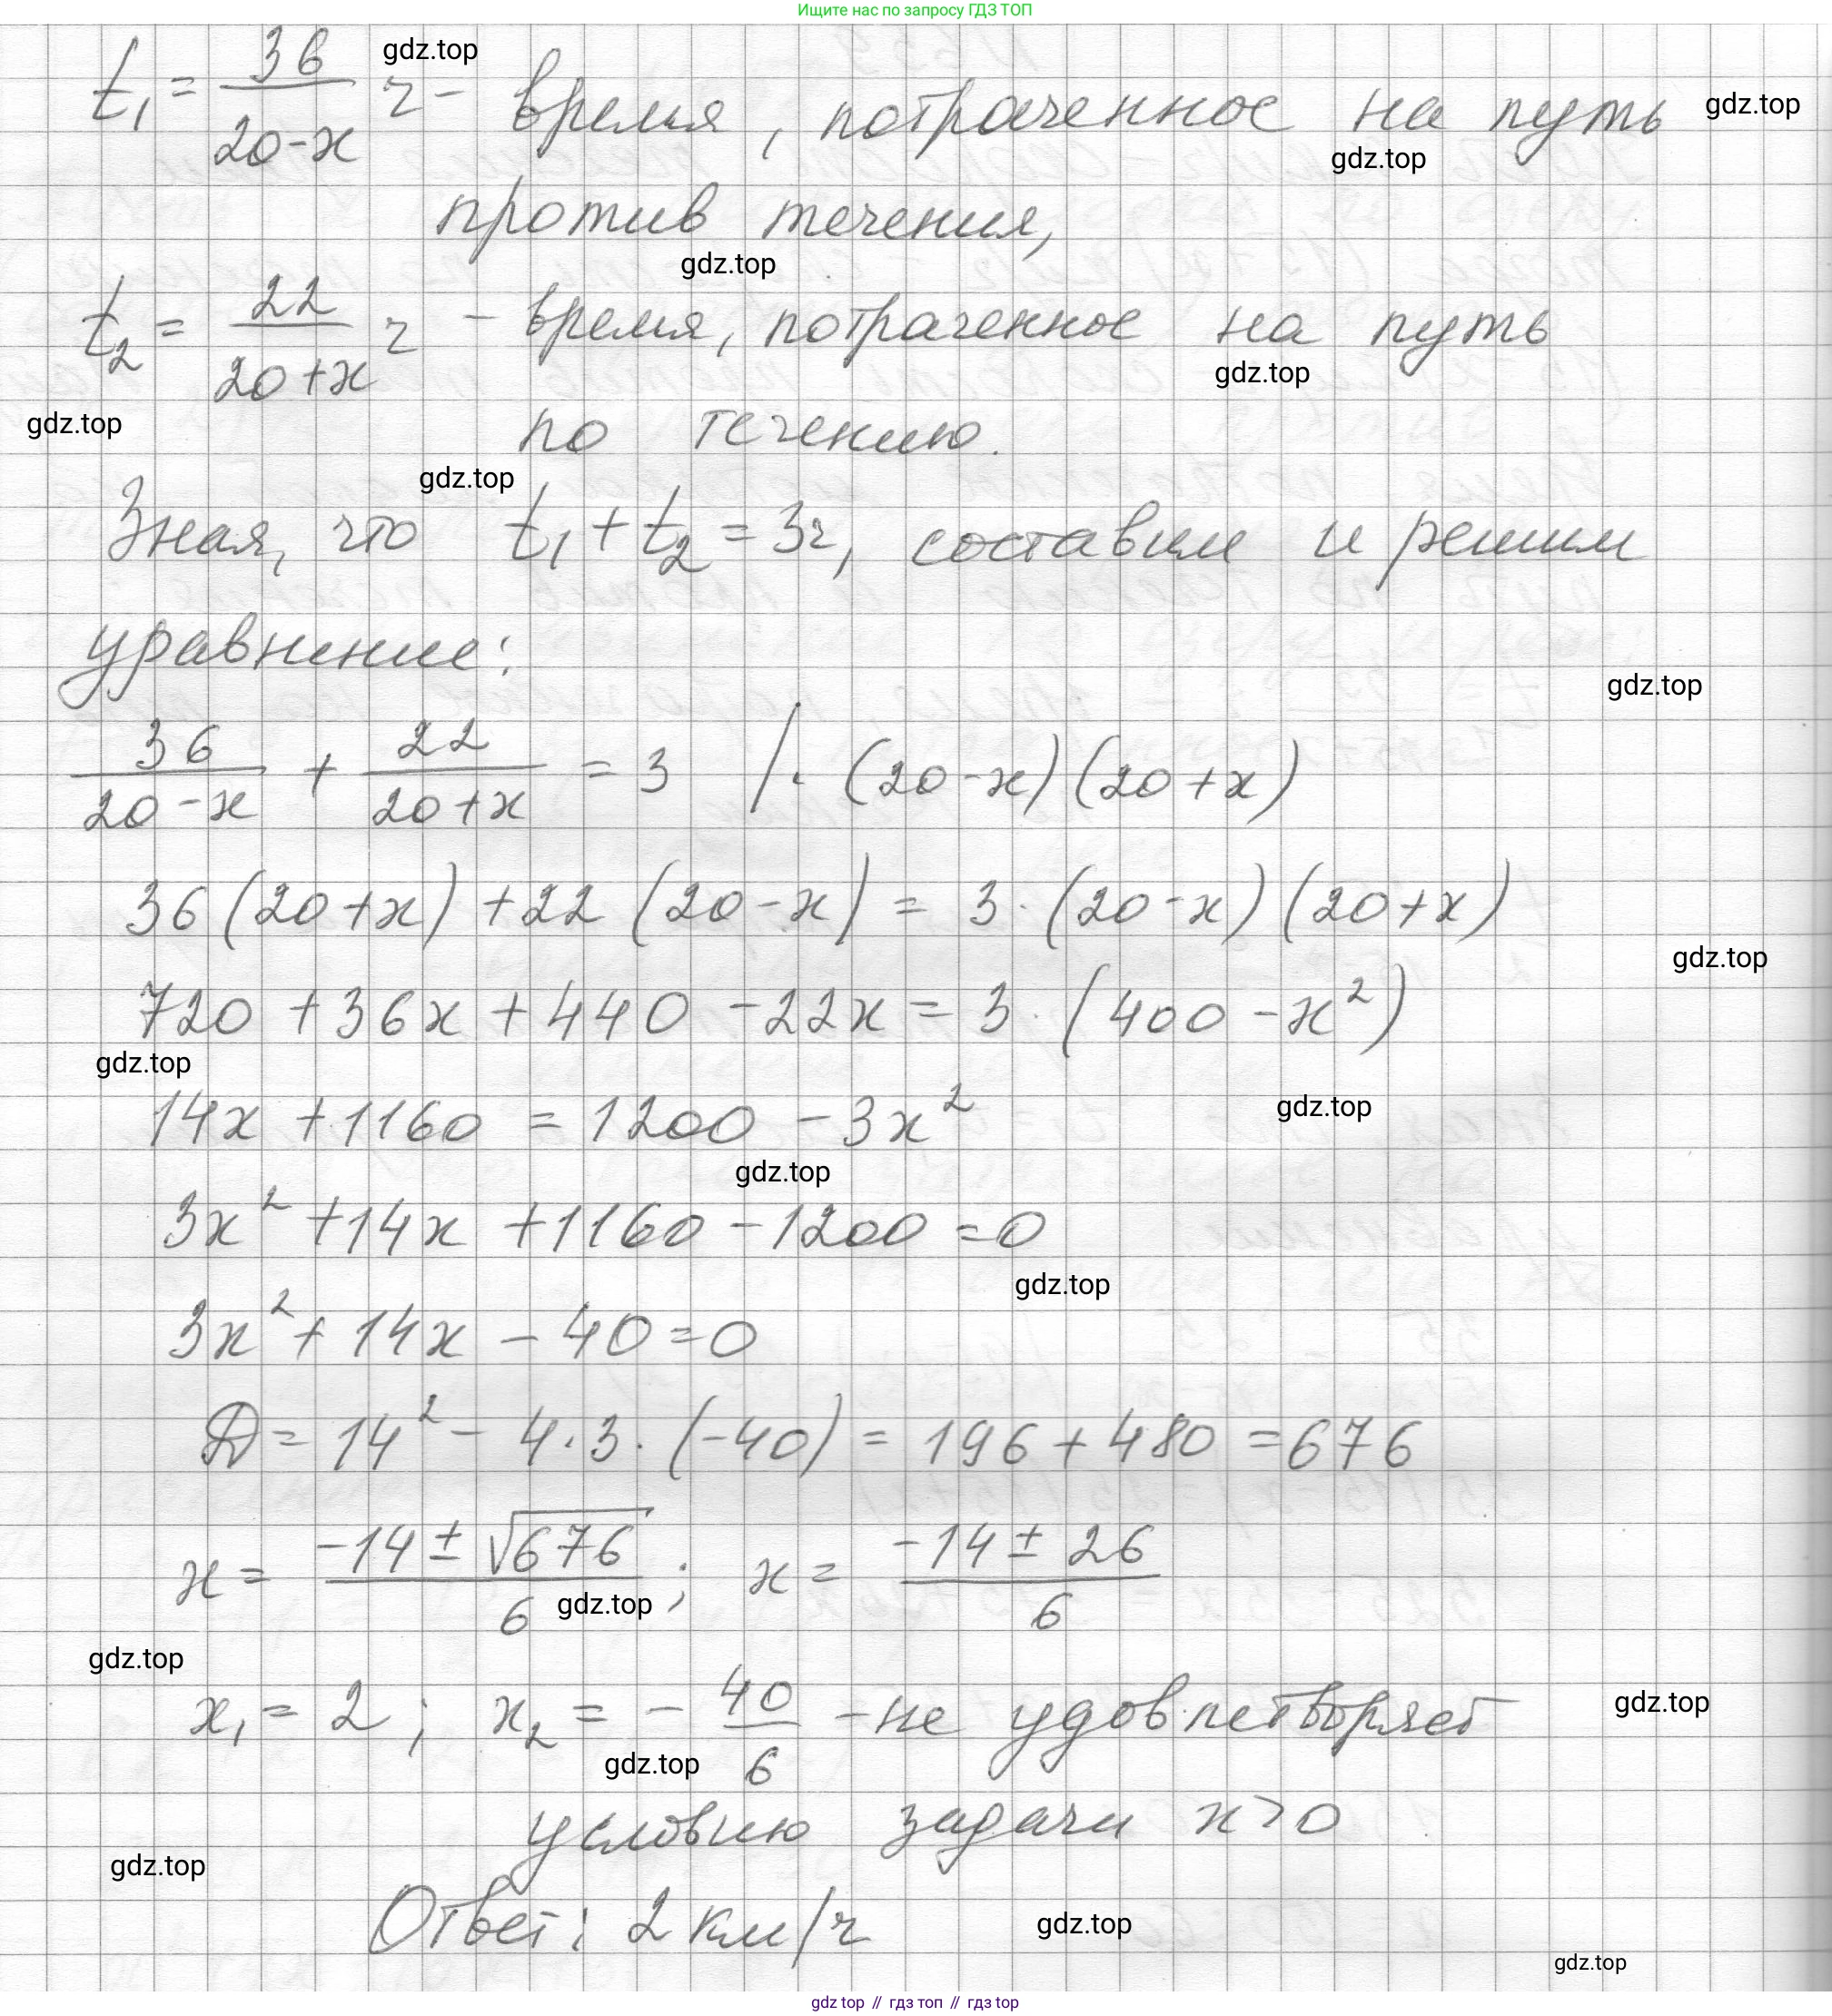 Ищите нас по запросу ГДЗ ТОП
t₁ = 36/(20-x) ч - время, потраченное на путь
gdz.top
gdz.top
gdz.top
против течения,
gdz.top
t₂ = 22/(20+x) ч - время, потраченное на путь
gdz.top
gdz.top
по течению.
gdz.top
Зная, что t₁ + t₂ = 3ч, составим и решим
уравнение:
gdz.top
36/(20-x) + 22/(20+x) = 3 /· (20-x)(20+x)
36(20+x) + 22(20-x) = 3·(20-x)(20+x)
gdz.top
720 + 36x + 440 - 22x = 3·(400 - x²)
gdz.top
gdz.top
14x + 1160 = 1200 - 3x²
gdz.top
3x² + 14x + 1160 - 1200 = 0
gdz.top
3x² + 14x - 40 = 0
D = 14² - 4·3·(-40) = 196 + 480 = 676
x = (-14 ± √676)/6 ; x = (-14 ± 26)/6
gdz.top
gdz.top
x₁ = 2 ; x₂ = - 40/6 - не удовлетворяет
gdz.top
gdz.top
условию задачи x > 0
gdz.top
Ответ: 2 км/ч
gdz.top
gdz.top
gdz top // гдз топ // gdz top